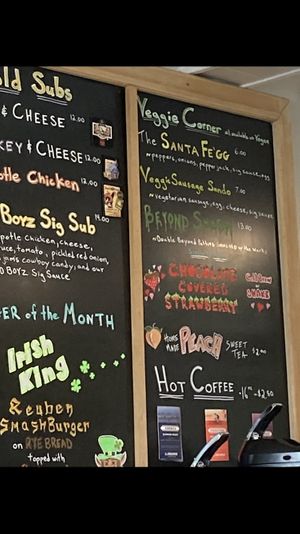 ld Subs
& CHEESE 12.00
KEY & CHEESE 12.00
otle Chicken 12.00
Boyz Sig Sub 14.00
potle chicken, cheese,
uce, tomato, pickled red onion,
jams cowboy candy, and our
D BOYZ Sig Sauce
ER of the MONTH
IRISH
KING
Reuben
SmashBurger
on RYE BREAD
topped with
Veggie Corner
The SANTA FE'GG 6.00
~peppers, onions, pepper jack, sig sauce, egg
Vegg'Sausage Sando 7.00
~vegetarian sausage, egg, cheese, sig sauce
BEYOND 13.00
~Double Beyond
CHOCOLATE
COVERED
STRAWBERRY
SHAKE
HOME MADE PEACH SWEET TEA $2.00
HOT COFFEE -16oz- $2.50